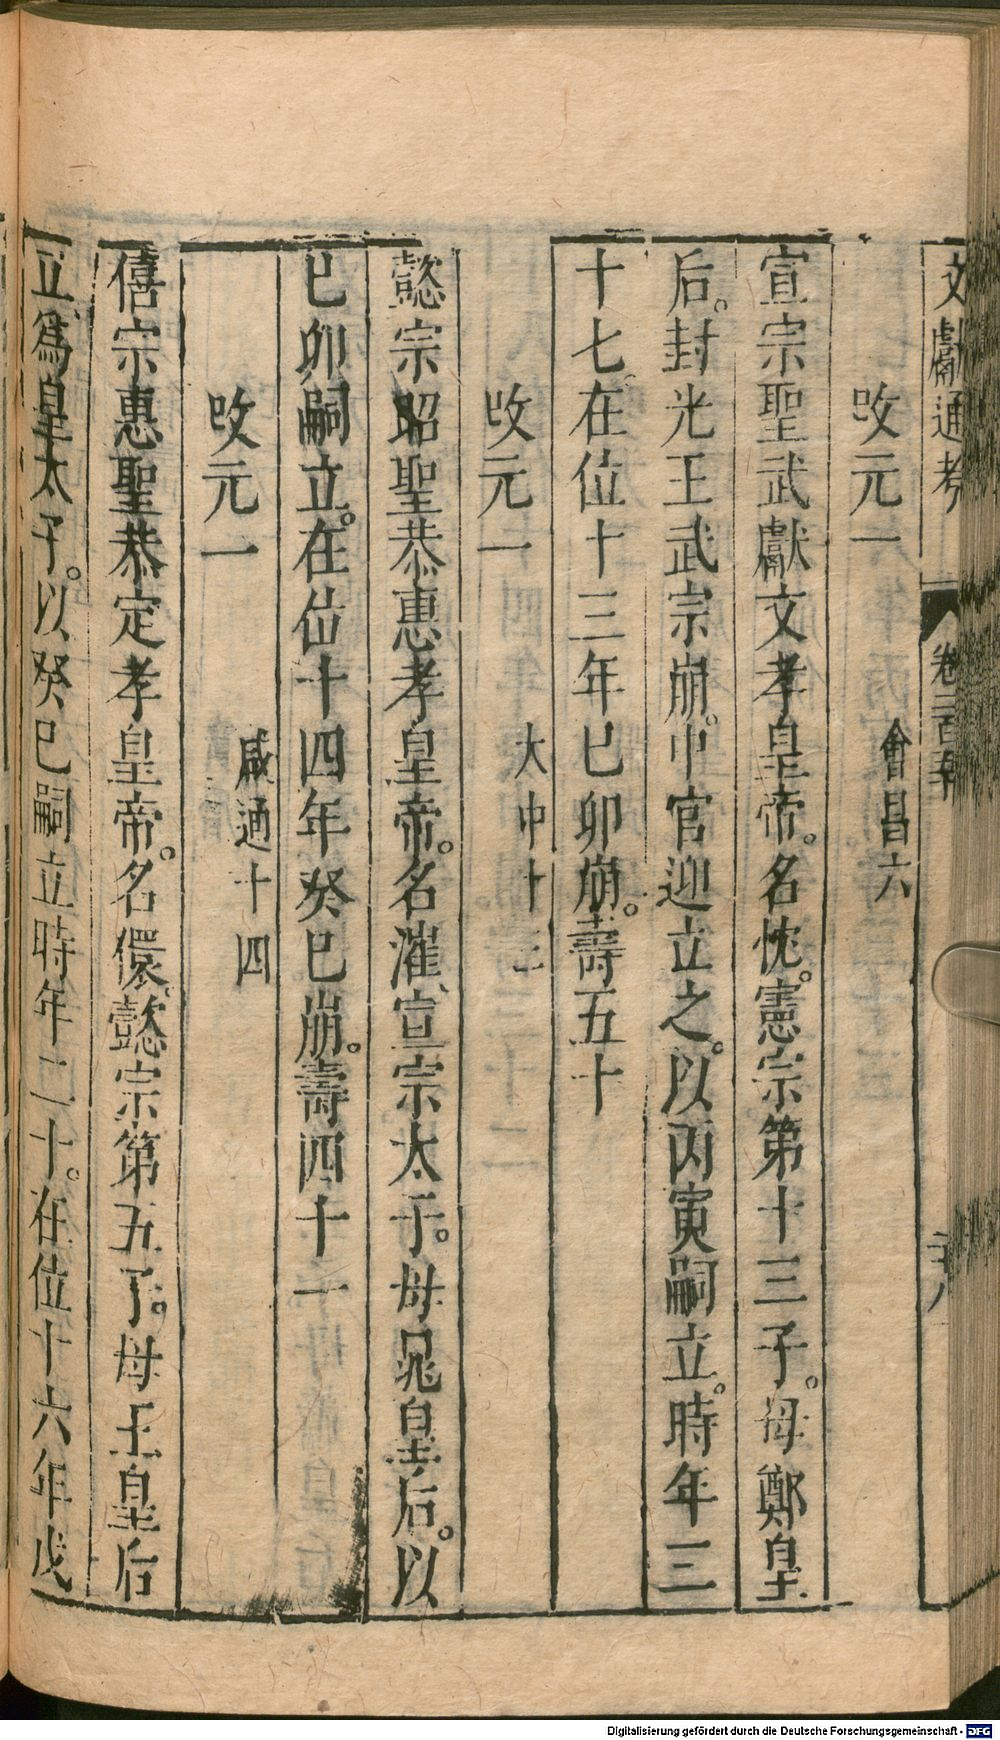 文獻通考　卷二百五十　十八
改元一　會昌六
宣宗聖武獻文孝皇帝。名忱。憲宗第十三子。母鄭皇
后。封光王武宗崩。中官迎立之。以丙寅嗣立。時年三
十七。在位十三年己卯崩。壽五十
改元一　大中十三
懿宗昭聖恭惠孝皇帝。名漼、宣宗太子。母晁皇后。以
己卯嗣立。在位十四年癸巳崩。壽四十一
改元一　咸通十四
僖宗惠聖恭定孝皇帝。名儇。懿宗第五子。母王皇后
立爲皇太子。以癸巳嗣立時年二十。在位十六年戊
Digitalisierung gefördert durch die Deutsche Forschungsgemeinschaft - DFG